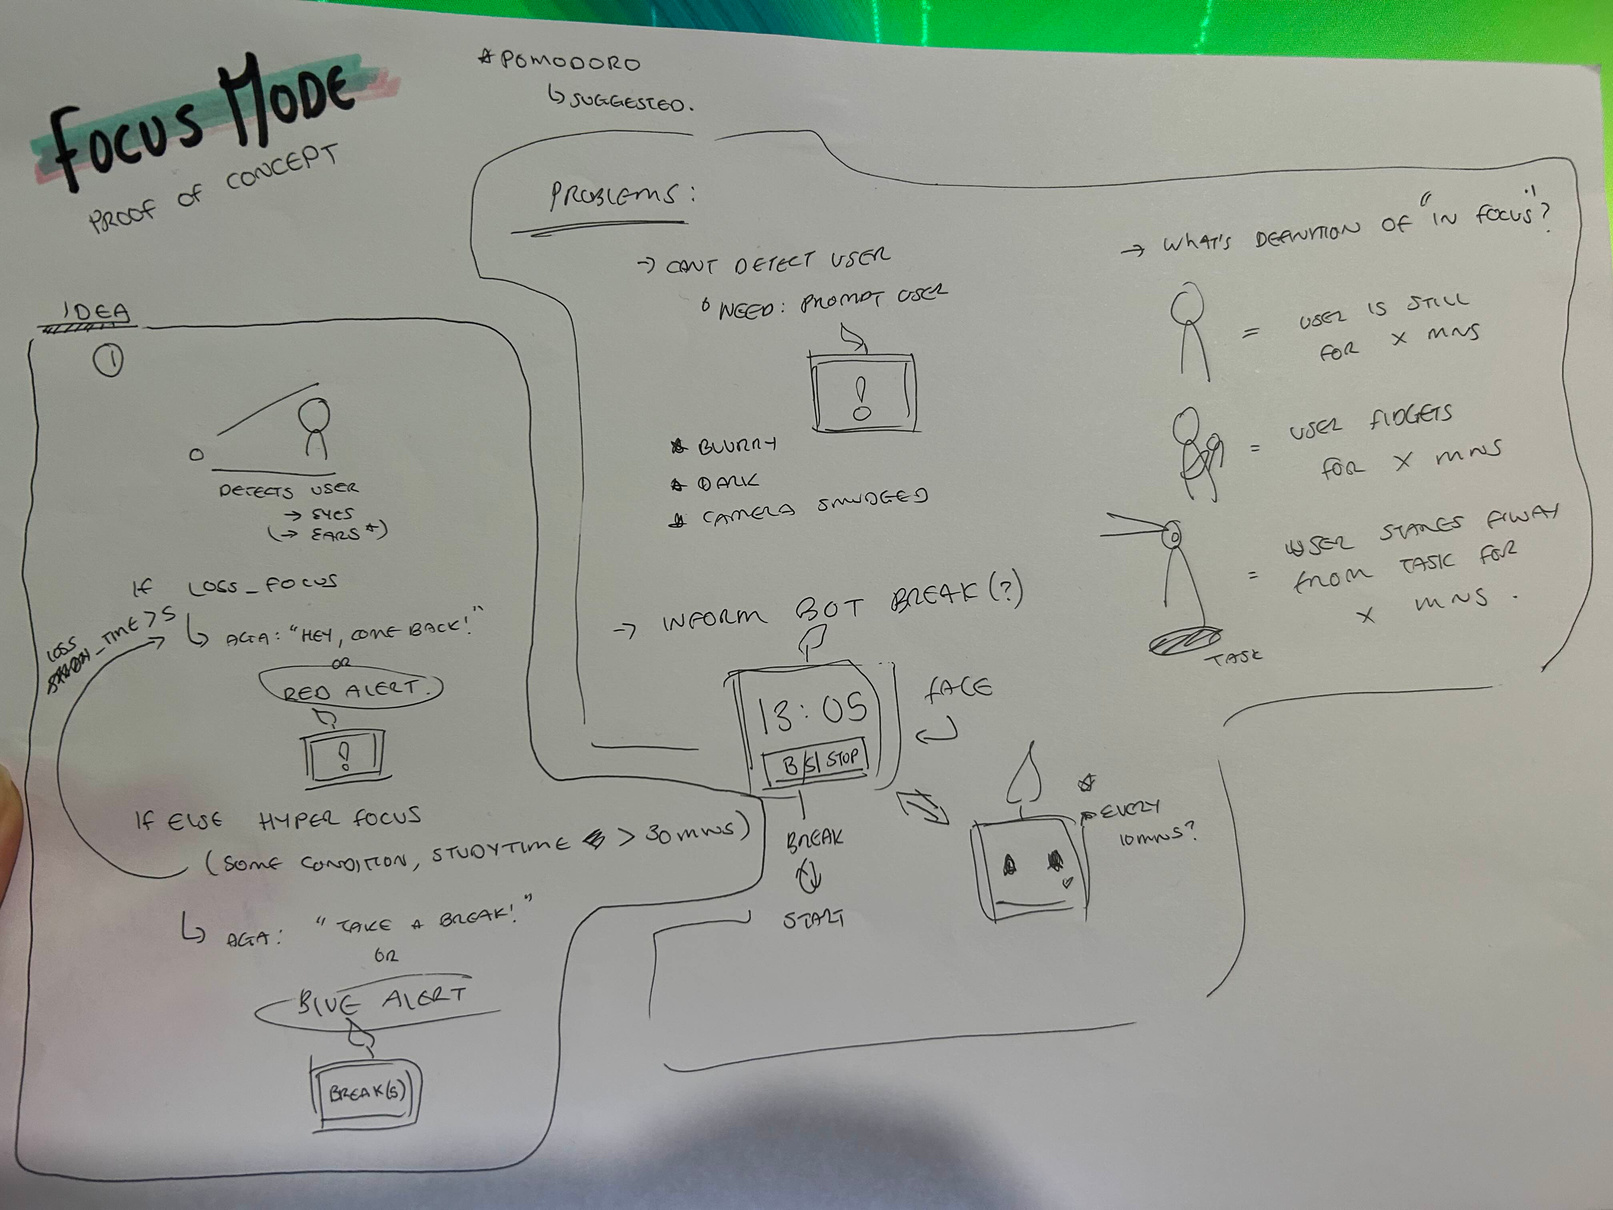 FOCUS MODE
PROOF OF CONCEPT
*POMODORO
↳ SUGGESTED.
IDEA
①
DETECTS USER
→ EYES
(→ EARS*)
IF LOSS_FOCUS
LOSS_TIME > 5
↳ AGA: "HEY, COME BACK!"
OR
RED ALERT.
!
IF ELSE HYPER FOCUS
(SOME CONDITION, STUDYTIME > 30 MNS)
↳ AGA: "TAKE A BREAK!"
OR
BLUE ALERT
BREAK(S)
PROBLEMS:
→ CANT DETECT USER
NEED: PROMPT USER
!
* BLURRY
* DARK
* CAMERA SMUDGED
→ INFORM BOT BREAK(?)
13:05
B/S/STOP
FACE
BREAK
START
* EVERY
10MNS?
→ WHAT'S DEFINITION OF "IN FOCUS"?
= USER IS STILL
FOR X MNS
= USER FIDGETS
FOR X MNS
= USER STARES AWAY
FROM TASK FOR
X MNS.
TASK